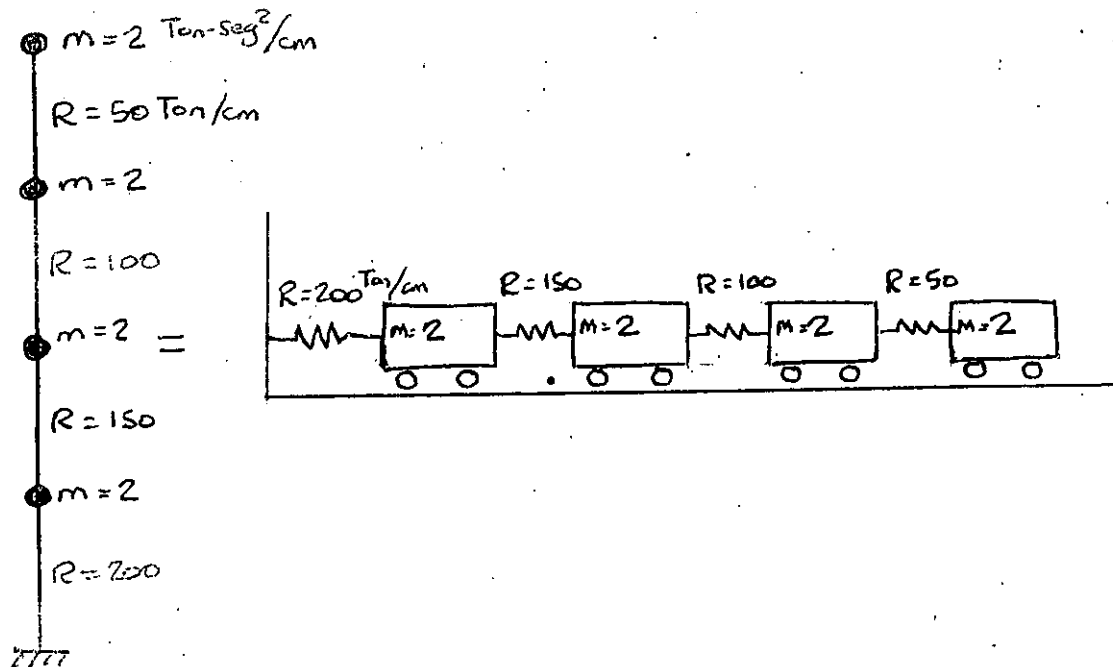 m = 2 Ton-seg²/cm
R = 50 Ton/cm
m = 2
R = 100
m = 2 =
R = 150
m = 2
R = 200
R=200 Ton/cm
R = 150
R = 100
R = 50
m=2
m=2
m=2
m=2